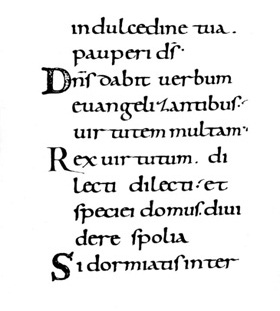 in dulcedine tua.
pauperi d̄s·
Dn̄s dabit uerbum
euangelizantibus·
uirtutem multam·
Rex uirtutum. di
lecti dilecti· et
speciei domus. diui
dere spolia
Si dormiatis inter